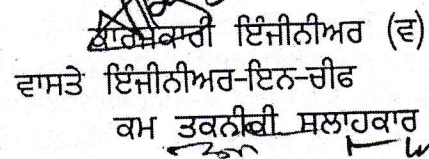 ਕਾਰਜਕਾਰੀ ਇੰਜੀਨੀਅਰ (ਵ)
ਵਾਸਤੇ ਇੰਜੀਨੀਅਰ-ਇਨ-ਚੀਫ
ਕਮ ਤਕਨੀਕੀ ਸਲਾਹਕਾਰ